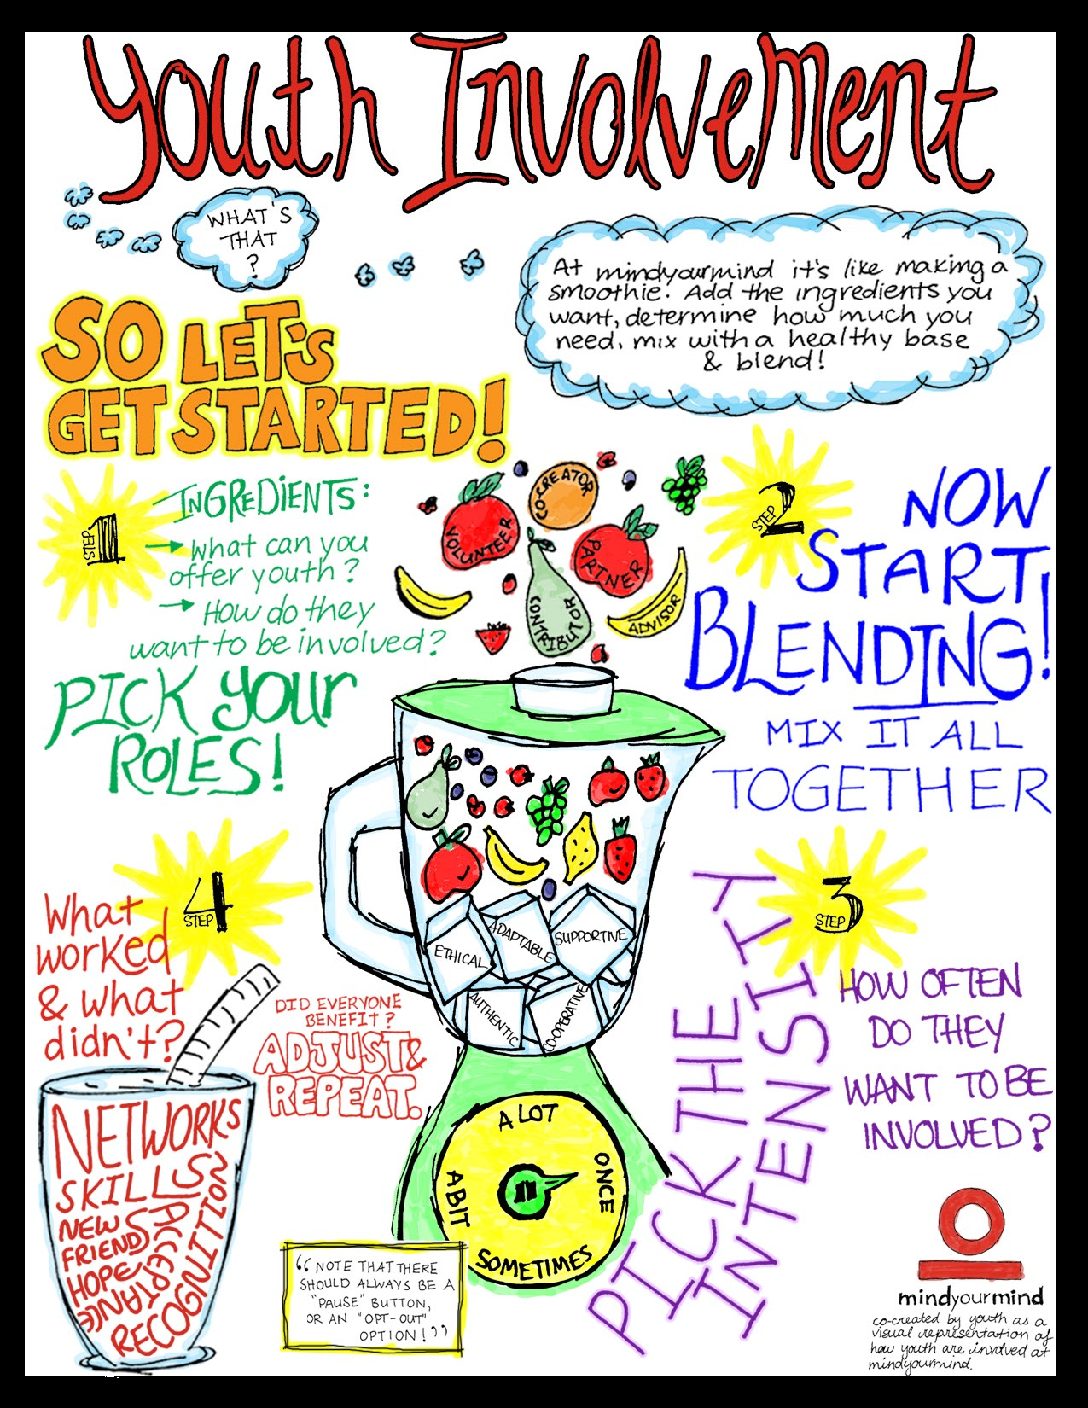 Youth Involvement
WHAT'S
THAT
?
At mindyourmind it's like making a
smoothie. Add the ingredients you
want, determine how much you
need, mix with a healthy base
& blend!
SO LET'S
GET STARTED!
STEP 1
INGREDIENTS:
→ What can you
offer youth?
→ How do they
want to be involved?
PICK YOUR
ROLES!
VOLUNTEER
CO-CREATOR
PARTNER
CONTRIBUTOR
ADVISOR
STEP 2
NOW
START
BLENDING!
MIX IT ALL
TOGETHER
ETHICAL
ADAPTABLE
SUPPORTIVE
AUTHENTIC
CO-OPERATIVE
STEP 3
PICK THE
INTENSITY
HOW OFTEN
DO THEY
WANT TO BE
INVOLVED?
A LOT
ONCE
SOMETIMES
A BIT
STEP 4
What
worked
& what
didn't?
DID EVERYONE
BENEFIT?
ADJUST &
REPEAT.
NETWORKS
SKILLS
NEW
FRIENDS
HOPE
ACCEPTANCE
RECOGNITION
"NOTE THAT THERE
SHOULD ALWAYS BE A
"PAUSE" BUTTON,
OR AN "OPT-OUT"
OPTION!"
mindyourmind
co-created by youth as a
visual representation of
how youth are involved at
mindyourmind.